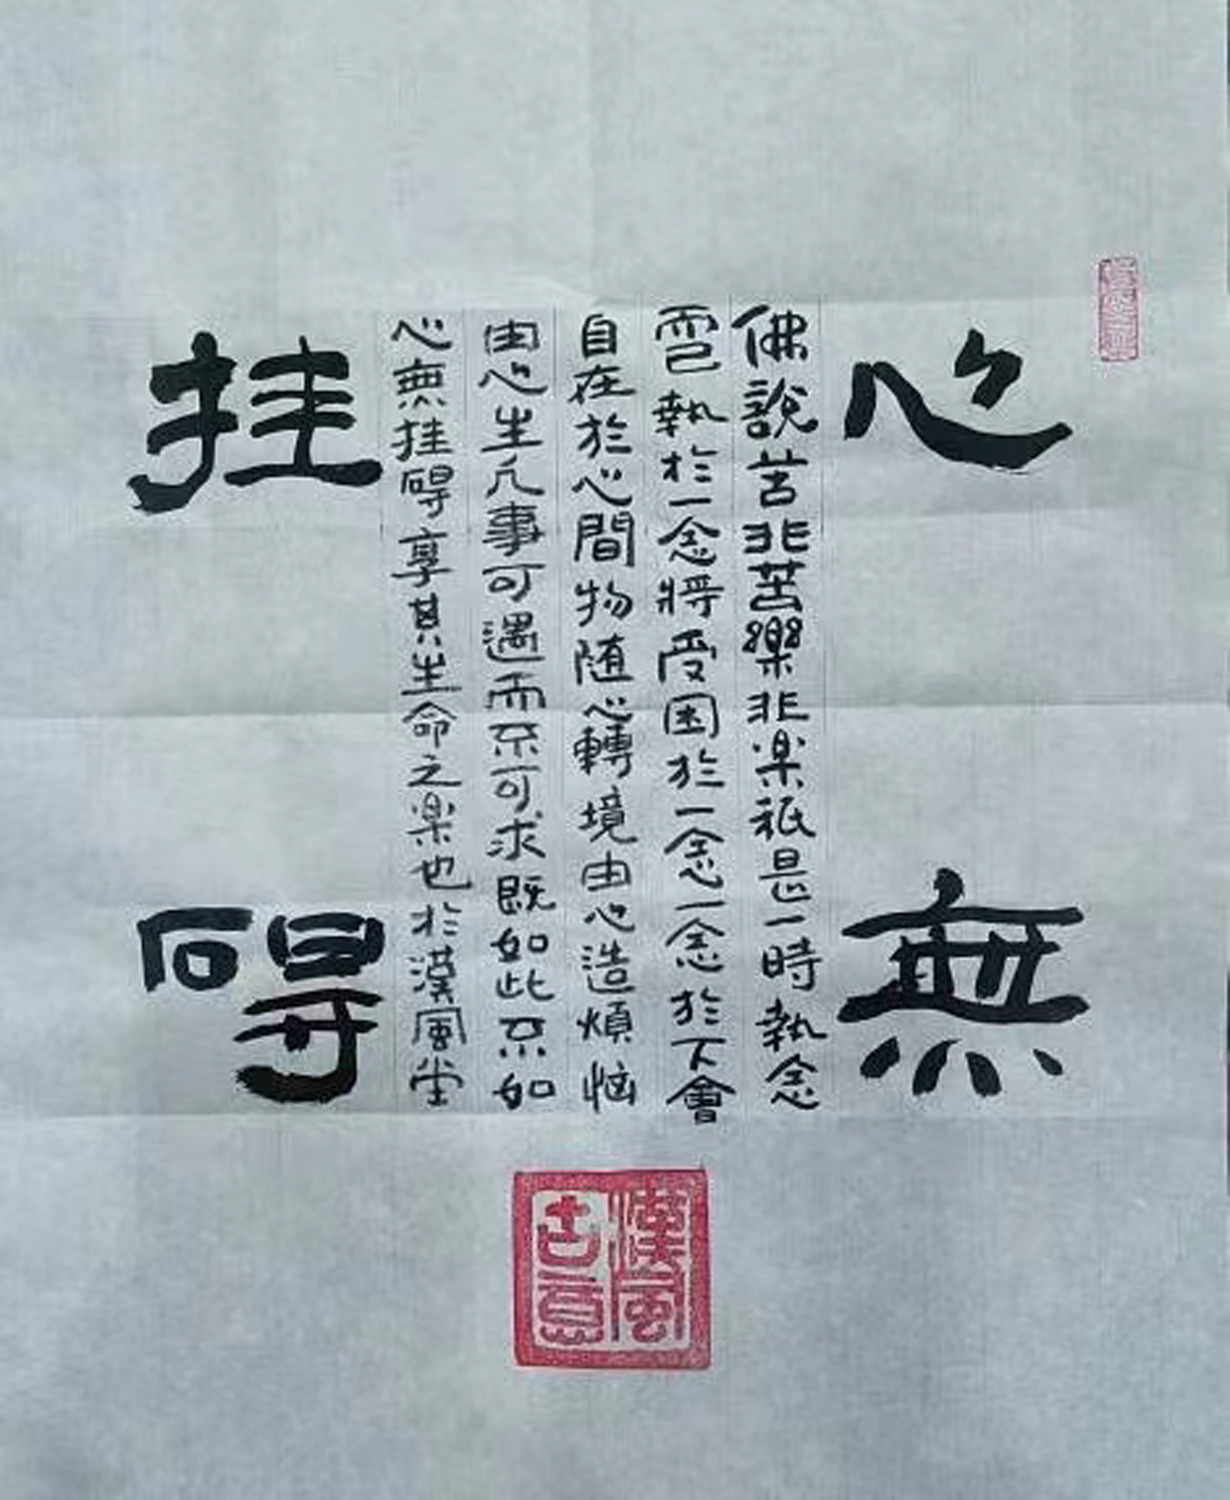 心無
佛說苦非苦樂非楽祇是一時執念
而已執於一念將受困於一念一念於下會
自在於心間物随心轉境由心造煩恼
由心生凡事可遇而不可求既如此不如
心無挂碍享其生命之楽也於漢風堂
挂碍
漢風
古意